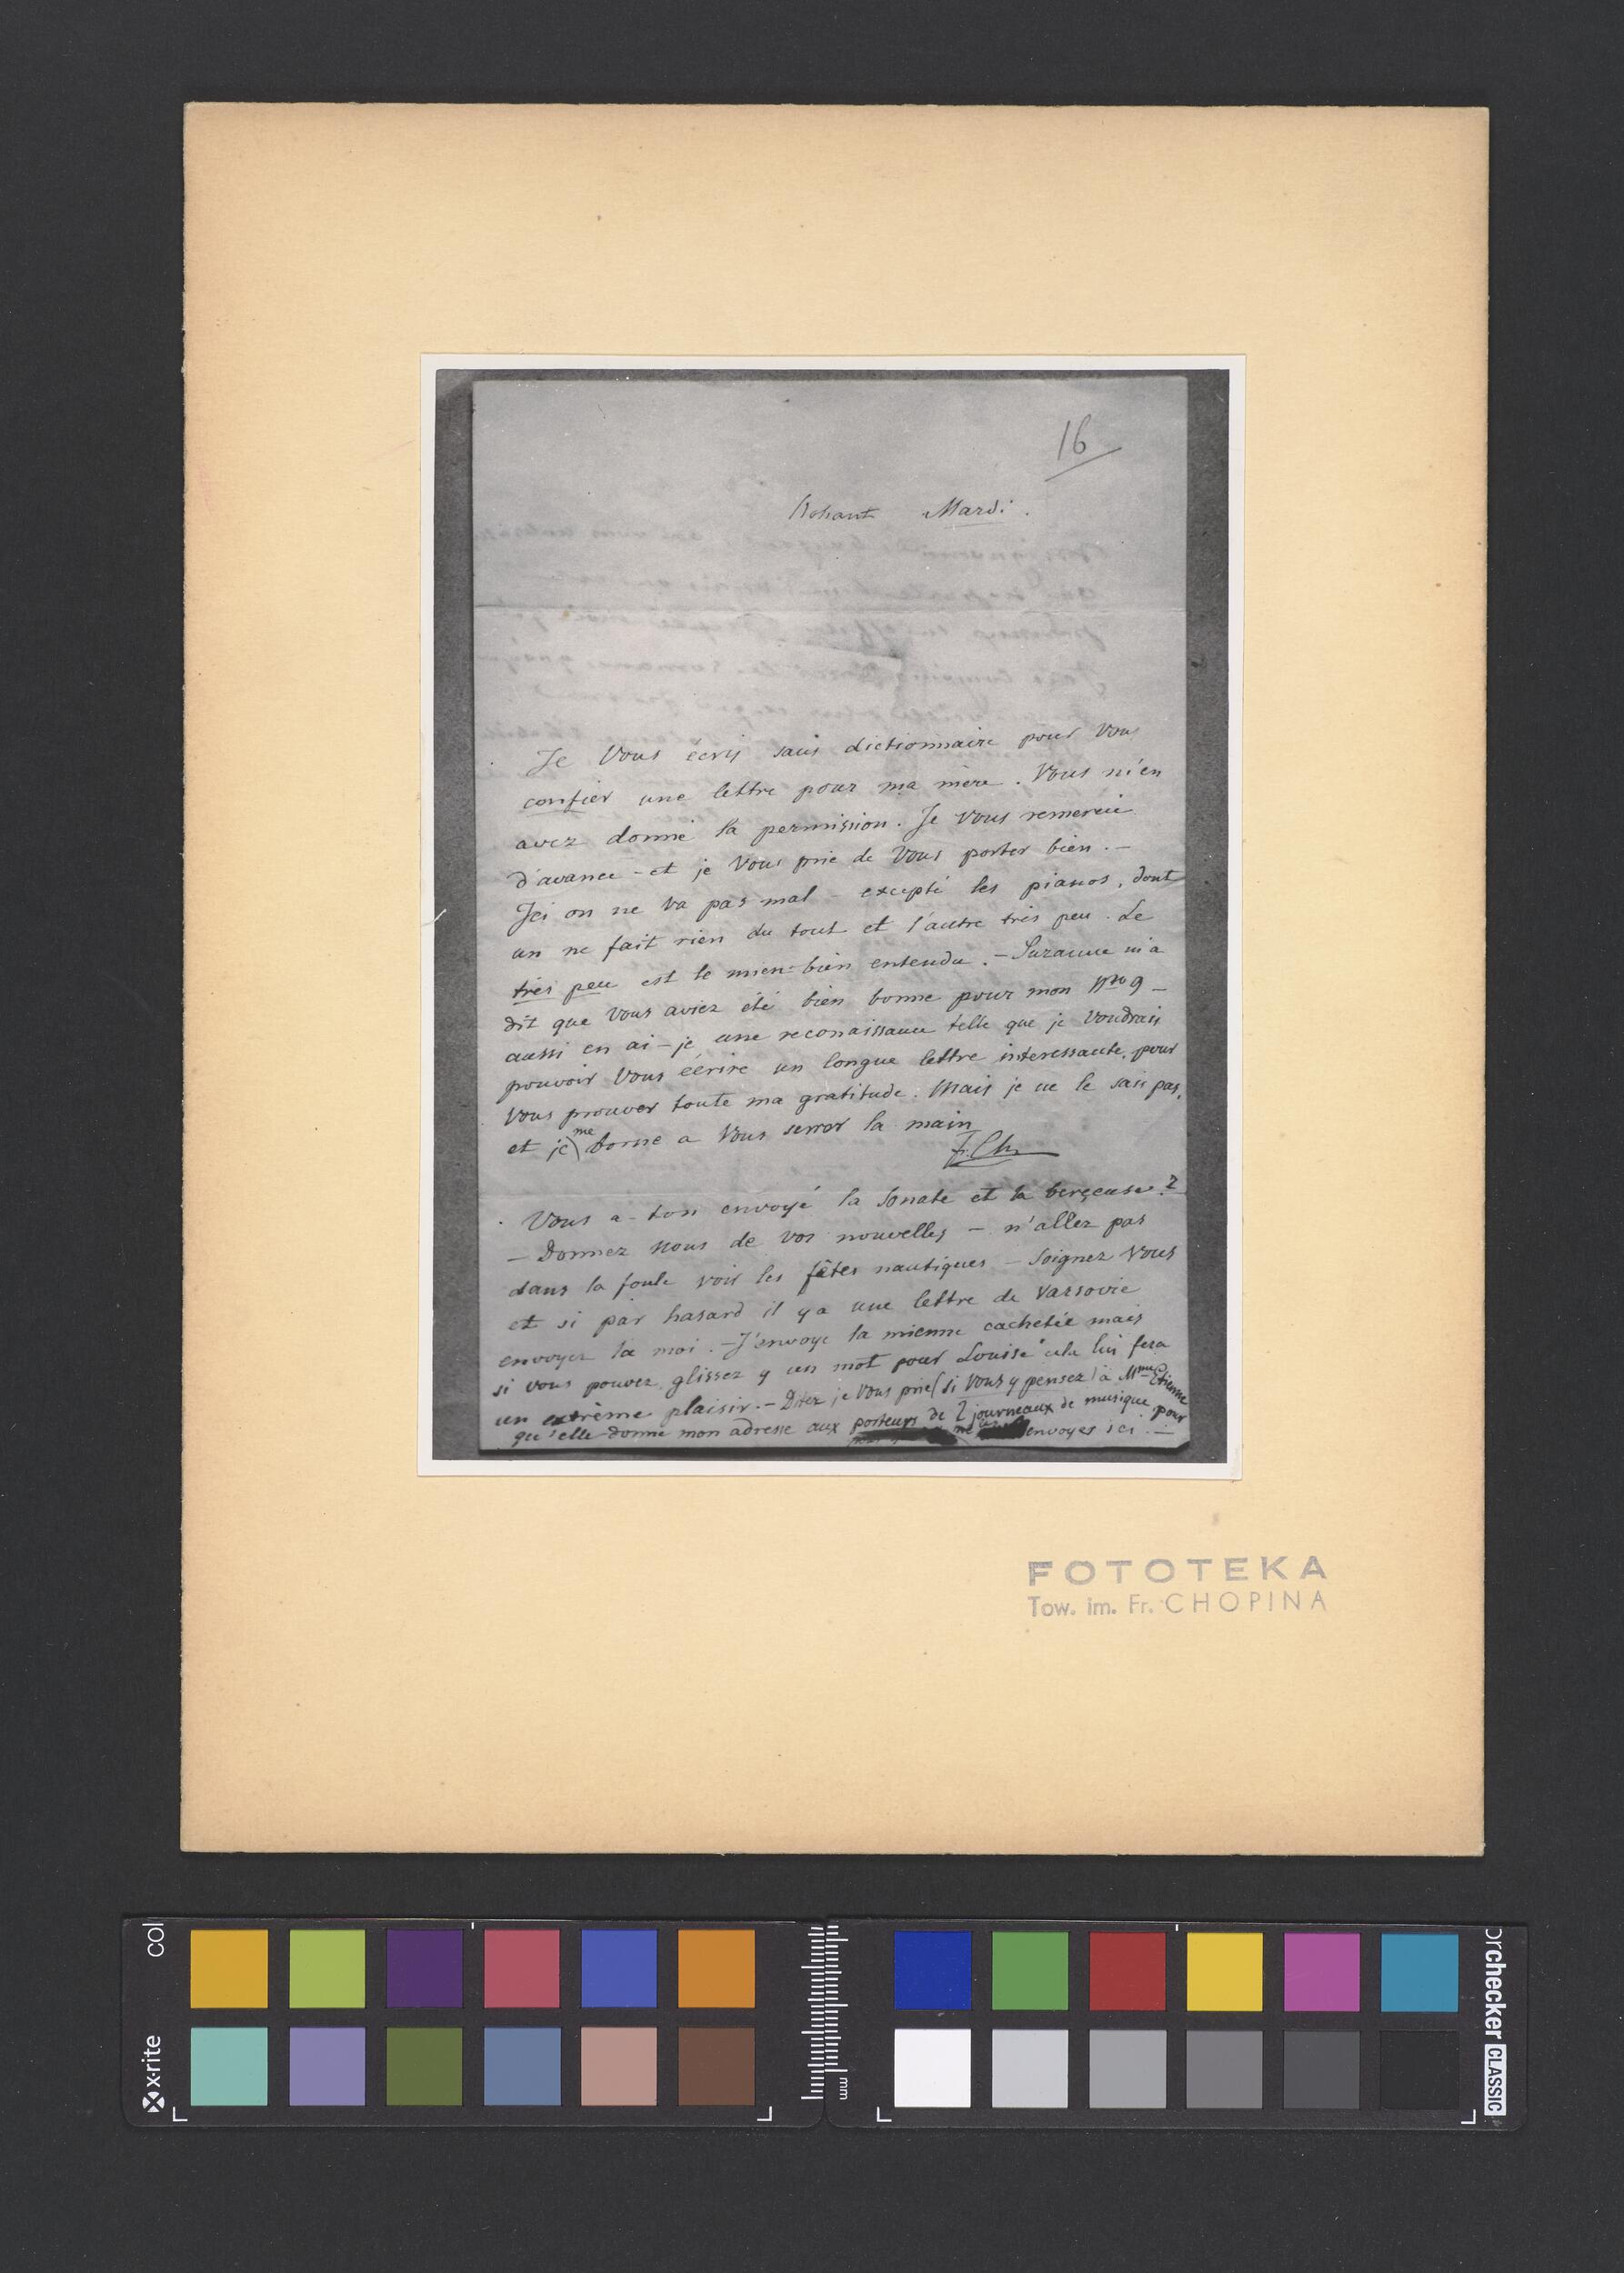 16
Nohant Mardi.
Je Vous écris sans dictionnaire pour Vous
confier une lettre pour ma mère. Vous m'en
avez donné la permission. Je Vous remercie
d'avance - et je Vous prie de Vous porter bien. -
Ici on ne va pas mal - excepté les pianos, dont
un ne fait rien du tout et l'autre très peu. Le
très peu est le mien - bien entendu. - Suzanne m'a
dit que Vous aviez été bien bonne pour mon Nro 9 -
aussi en ai-je une reconaissance telle que je Voudrais
pouvoir Vous écrire un longue lettre interessante, pour
Vous prouver toute ma gratitude. Mais je ne le sais pas,
et je me borne a Vous serrer la main
F. Ch
Vous a-t-on envoyé la Sonate et la berçeuse?
- Donnez nous de vos nouvelles - n'allez pas
dans la foule voir les fêtes nautiques - Soignez Vous
et si par hasard il y a une lettre de Varsovie
envoyez la moi. - J'envoye la mienne cachetée mais
si vous pouvez, glissez y un mot pour Louise cela lui fera
un extrème plaisir. - Dites je Vous prie (si Vous y pensez) à Mme Etienne
qu'elle donne mon adresse aux porteurs de 2 journeaux de musique pour
me envoyes ici. -
FOTOTEKA
Tow. im. Fr. CHOPINA
x-rite
col
mm
orchecker CLASSIC